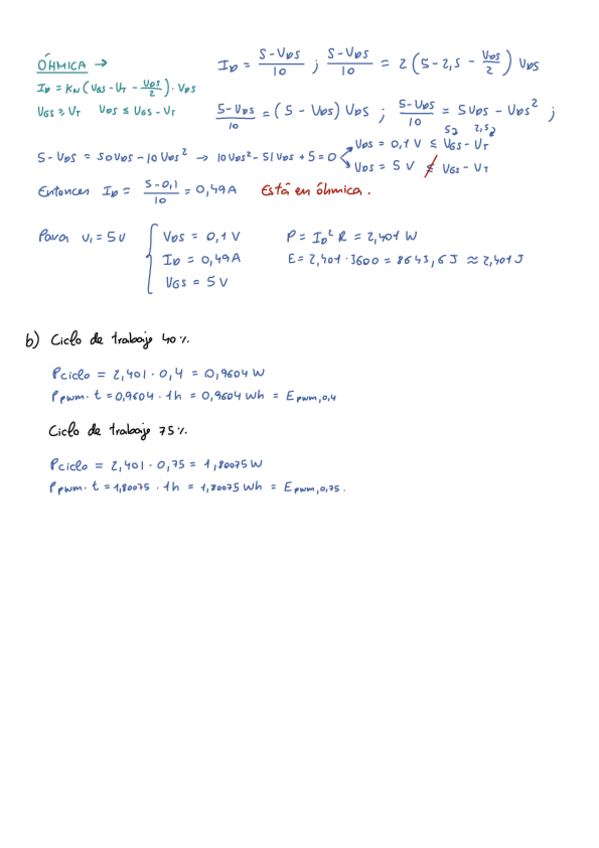 ÓHMICA →
I_D = K_N (V_GS - U_T - V_DS/2) · V_DS
V_GS ≥ V_T   V_DS ≤ U_GS - V_T
I_D = (5-V_DS)/10 ; (5-V_DS)/10 = 2 (5-2,5 - V_DS/2) V_DS
(5-V_DS)/10 = (5 - V_DS) V_DS ; (5-V_DS)/10 = 5V_DS - V_DS² ;
5 - V_DS = 50V_DS - 10V_DS² → 10V_DS² - 51V_DS + 5 = 0
V_DS = 0,1 V ≤ V_GS - V_T
V_DS = 5 V ≰ V_GS - V_T
Entonces I_D = (5-0,1)/10 = 0,49A   Está en óhmica.
Para U_i = 5V
V_DS = 0,1 V
I_D = 0,49A
U_GS = 5 V
P = I_D² R = 2,401 W
E = 2,401 · 3600 = 8643,6 J ≈ 2,401 J
b) Ciclo de trabajo 40%.
P ciclo = 2,401 · 0,4 = 0,9604 W
P pwm · t = 0,9604 · 1h = 0,9604 Wh = E pwm,0,4
Ciclo de trabajo 75%.
P ciclo = 2,401 · 0,75 = 1,80075 W
P pwm · t = 1,80075 · 1h = 1,80075 Wh = E pwm,0,75.